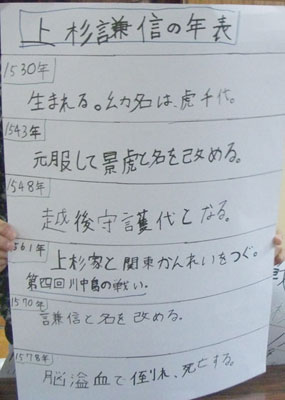 上杉謙信の年表
1530年
生まれる。幼名は、虎千代。
1543年
元服して景虎と名を改める。
1548年
越後守護代となる。
1561年
上杉家と関東かんれいをつぐ。
第四回川中島の戦い。
1570年
謙信と名を改める。
1578年
脳溢血で倒れ、死亡する。